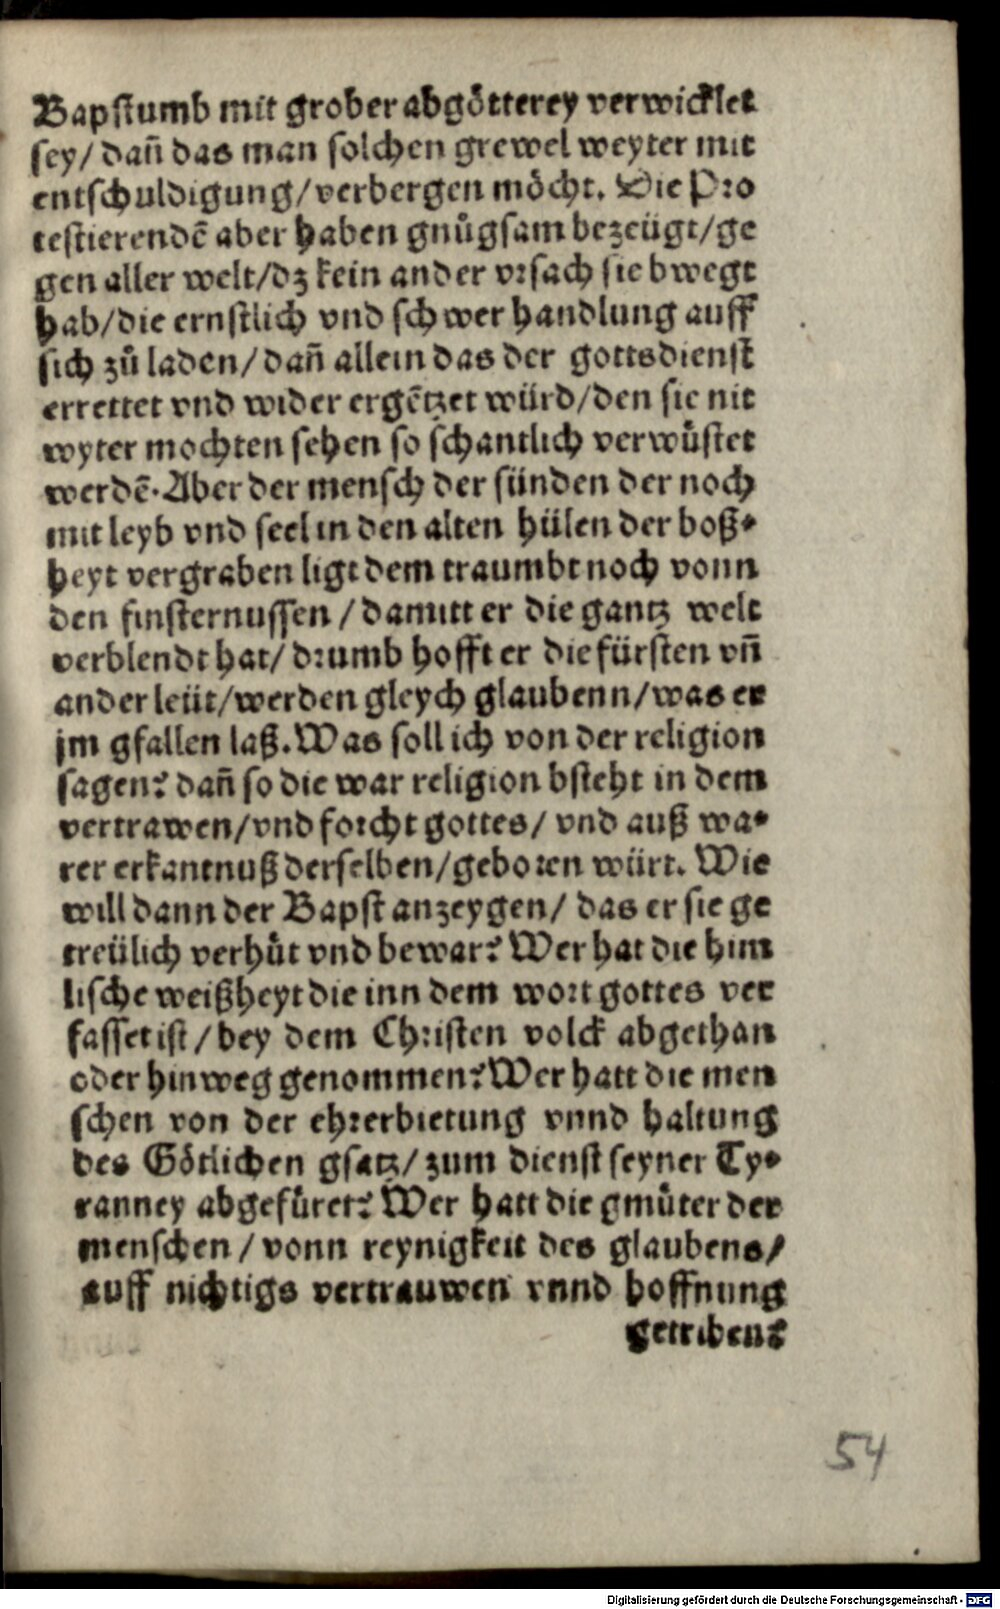 Bapstumb mit grober abgötterey verwicklet
sey/ dañ das man solchen grewel weyter mit
entschuldigung/ verbergen möcht. Die Pro
testierendē aber haben gnůgsam bezeügt/ ge
gen aller welt/ dz kein ander vrsach sie bwegt
hab/ die ernstlich vnd schwer handlung auff
sich zů laden/ dañ allein das der gottsdienst
errettet vnd wider ergētzet würd/ den sie nit
wyter mochten sehen so schantlich verwůstet
werdē. Aber der mensch der sünden der noch
mit leyb vnd seel in den alten hülen der boß-
heyt vergraben ligt dem traumbt noch vonn
den finsternussen / damitt er die gantz welt
verblendt hat/ drumb hofft er die fürsten vñ
ander leüt/ werden gleych glaubenn/ was er
jm gfallen laß. Was soll ich von der religion
sagen? dañ so die war religion bsteht in dem
vertrawen/ vnd forcht gottes/ vnd auß wa-
rer erkantnuß derselben/ geboren würt. Wie
will dann der Bapst anzeygen/ das er sie ge
treülich verhůt vnd bewar? Wer hat die him
lische weißheyt die inn dem wort gottes ver
fasset ist/ bey dem Christen volck abgethan
oder hinweg genommen? Wer hatt die men
schen von der ehrerbietung vnnd haltung
des Götlichen gsatz/ zum dienst seyner Ty-
ranney abgefůret? Wer hatt die gmůter der
menschen / vonn reynigkeit des glaubens/
auff nichtigs vertrauwen vnnd hoffnung
getriben?
54
Digitalisierung gefördert durch die Deutsche Forschungsgemeinschaft - DFG